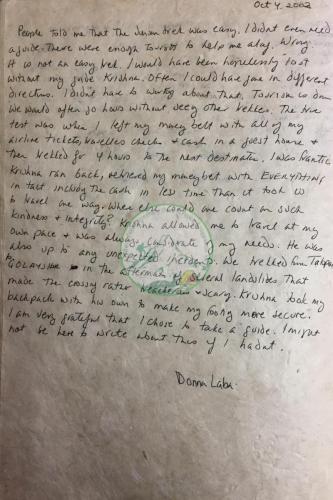 Oct 4, 2002
People told me that the trek was easy. I didn't even need
a guide. There were enough tourists to help me along. Wrong.
It is not an easy trek. I would have been hopelessly lost
without my guide Krishna. Often I could have gone in different
directions. I didn't have to worry about that. Tourism is down
we would often go hours without seeing other trekkers. The true
test was when I left my money belt with all of my
airline tickets, travellers checks & cash in a guest house &
then trekked for 4 hours to the next destination. I was frantic
Krishna ran back, retrieved my money belt with EVERYTHING
in tact including the cash in less time than it took us
to travel one way. Where else could one count on such
kindness & integrity? Krishna allowed me to travel at my
own pace & was always considerate of my needs. He was
also up to any unexpected incidents. We trekked from
to in the aftermath of several landslides that
made the crossing rather treacherous & scary. Krishna took my
backpack with his own to make my footing more secure.
I am very grateful that I chose to take a guide. I might
not be here to write about this if I hadn't.
Donna